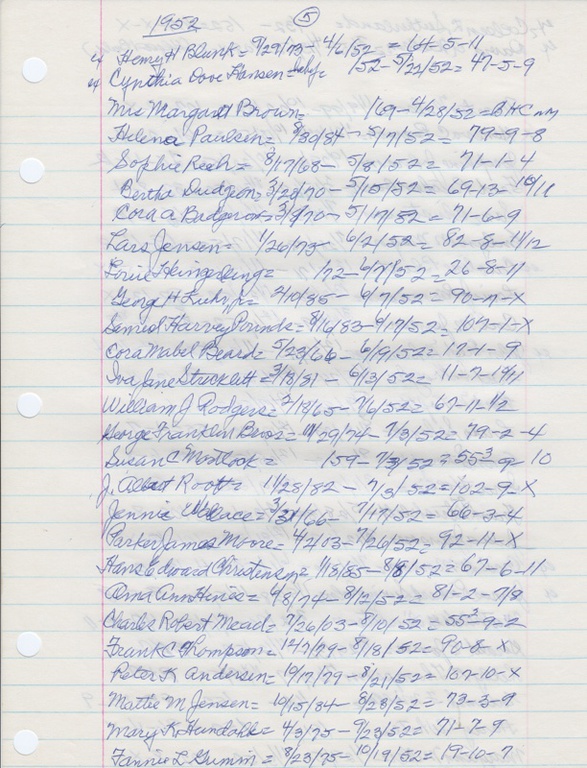 1952 5
Henry H Blunk = 9/29/73 - 4/6/52 = 164-5-11
Cynthia Dove Hansen = July /52 - 5/22/52 = 47-5-9
Mrs Margaret Brown = /69 - 4/28/52 = BHC
Helena Paulsen = 8/30/84 - 5/7/52 = 79-9-8
Sophie = 8/17/68 - 5/8/52 = 71-1-4
Bertha Dudgeon = 3/28/70 - 5/15/52 = 69-13- 10/11
Cora A = 3/9/70 - 5/17/52 = 71-6-9
Lars Jensen = 1/26/73 - 6/2/52 = 82-8-11/12
Louie = /72 - 6/7/52 = 26-8-11
Georg H = 2/10/85 - 6/7/52 = 90-11-X
Samuel Harvey Pounds = 8/16/83 - 6/17/52 = 107-1-X
Cora Mabel Beard = 5/23/66 - 6/19/52 = 17-1-9
Iva Jane = 3/18/81 - 6/13/52 = 11-7-
William J Rodgers = 2/19/65 - 7/6/52 = 67-11-1/2
George Franklin = 11/29/74 - 7/3/52 = 79-2-4
Susan C Motlock = 159 - 7/3/52 = 55 10
J. Albert Root = 11/28/82 - 7/13/52 = 102-9-X
Jennie Wallace = 3/31/66 - 7/17/52 = 66-3-4
Parker James Moore = 4/2/03 - 7/26/52 = 92-11-X
Hans Edward Christensen = 1/18/85 - 8/8/52 = 67-6-11
Ann Hines = 9/8/74 - 8/12/52 = 81-2-7/8
Charles Robert Mead = 7/26/03 - 8/10/52 = 55-9-2
Frank C Thompson = 12/7/79 - 8/18/52 = 90-8-X
Peter K Andersen = 10/17/79 - 8/21/52 = 107-10-X
Mattie M Jensen = 10/15/84 - 8/28/52 = 73-3-9
Mary K = 4/3/75 - 9/23/52 = 71-7-9
Fannie L Gumm = 8/23/75 - 10/19/52 = 19-10-7